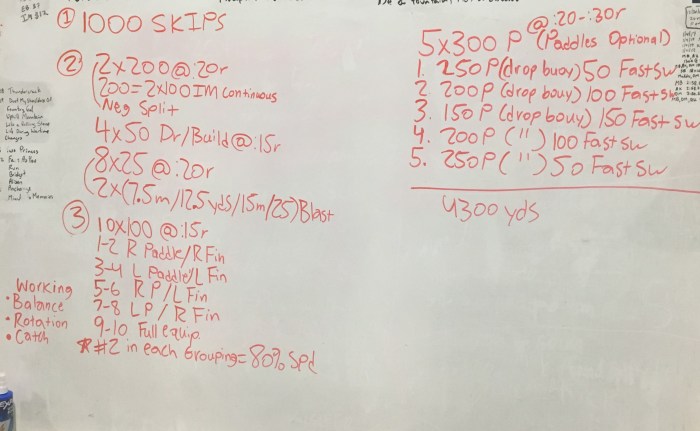 ① 1000 SKIPS
② 2x200@:20r
200=2x100IM continuous
Neg Split
4x50 Dr/Build@:15r
8x25 @:20r
2x(7.5m/12.5yds/15m/25)Blast
③ 10x100 @:15r
1-2 R Paddle/R Fin
3-4 L Paddle/L Fin
5-6 R P/L Fin
7-8 L P/ R Fin
9-10 Full equip
#2 in each Grouping=80% Spd
Working
• Balance
• Rotation
• Catch
@:20-:30r
5x300 P (Paddles Optional)
1. 250P(drop buoy)50 Fast Sw
2. 200P (drop bouy) 100 Fast Sw
3. 150P (drop bouy) 150 Fast Sw
4. 200P ( " ) 100 Fast Sw
5. 250P( " ) 50 Fast Sw
4300 yds